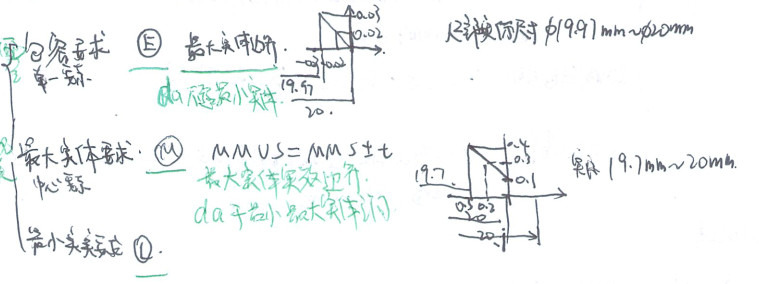 包容要求 Ⓔ 最大实体边界.
单一要素
da 不超最小实体.
0.03
0.02
-0.03 -0.02
19.97
20.
尺寸实际尺寸 φ19.97mm~φ20mm
最大实体要求. Ⓜ MMVS=MMS±t
中心要素
最大实体实效边界.
da 于最小最大实体之间
0.4
0.3
0.1
19.7
0.3 0.2
20
20
实际 19.7mm~20mm.
最小实体要求 Ⓛ.